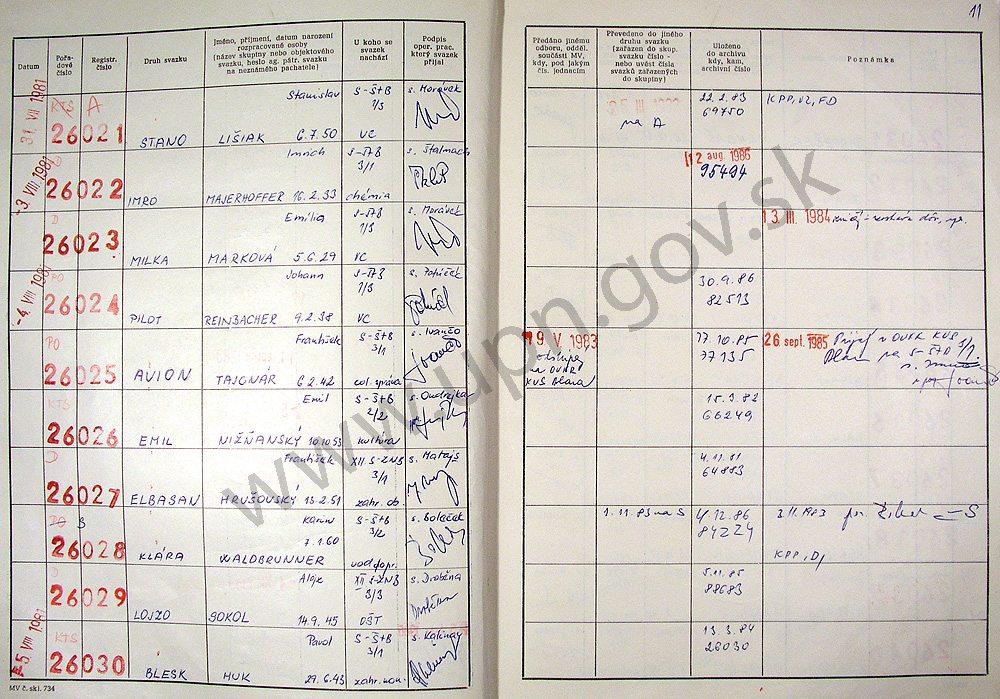 11
Datum
Pořa-
dové
číslo
Registr.
číslo
Druh svazku
Jméno, příjmení, datum narození
rozpracované osoby
(název skupiny nebo objektového
svazku, heslo ag. pátr. svazku
na neznámého pachatele)
U koho se
svazek
nachází
Podpis
oper. prac.
který svazek
přijal
Předáno jinému
odboru, odděl.
součásti MV,
kdy, pod jakým
čís. jednacím
Převedeno do jiného
druhu svazku
(zařazen do skup.
svazku číslo -
nebo uvést čísla
svazků zařazených
do skupiny)
Uloženo
do archivu
kdy, kam,
archivní číslo
Poznámka
31. VII 1981
KTS A
26021
STANO
Stanislav
LIŠIAK 6.7.50
S-ŠtB
1/3
VC
s. Morávek
na A
22.2.83
69750
KPP, VZ, FD
-3. VIII. 1981
D
26022
IMRO
Imrich
MAJERHOFFER 16.2.33
S-ŠTB
3/1
chémia
s. Štalmach
12 aug. 1986
95494
D
26023
MILKA
Emília
MARKOVÁ 5.6.29
S-ŠTB
1/3
VC
s. Morávek
13. III. 1984
-4. VIII. 1981
PO
26024
PILOT
Johann
REINBACHER 9.2.38
S-ŠTB
1/3
VC
30.9.86
82513
PO
26025
AVION
František
TAJGNÁR 6.2.42
S-ŠtB
3/1
col. správa
s. Ivančo
19. V. 1983
na OVKR
KUŠ Blava
17.10.85
77135
26 sept. 1985
KTS
26026
EMIL
Emil
NIŽŇANSKÝ 10.10.53
S-ŠtB
2/2
kultúra
s. Ondrejka
15.3.82
66249
D
26027
ELBASAN
František
HRUŠOVSKÝ 13.2.51
XII. S-ZNB
3/1
zahr. ob.
s. Matajš
4.11.81
64883
PO S
26028
KLÁRA
Karin
7.1.60
WALDBRUNNER
S-ŠtB
3/2
s. Boleček
1.11.83 na S
4.12.86
84224
KPP, D,
26029
LOJZO
Alojz
SOKOL 14.9.45
XII S-ZNB
3/3
OŠT
s. Droběna
5.11.85
88683
-5. VIII 1981
KTS
26030
BLESK
Pavol
HUK 29.6.43
S-ŠtB
3/1
s. Kálnay
13.3.84
26030
MV č. skl. 734
www.upn.gov.sk